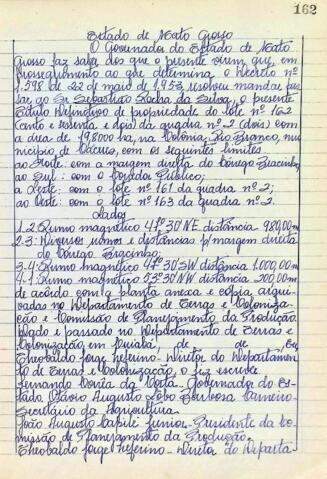 162
Estado de Mato Grosso
O Governador do Estado de Mato
Grosso faz saber aos que o presente virem que, em
prosseguimento ao que determina o Decreto nº
1.598 de 22 de maio de 1.953 resolveu mandar pas-
sar ao Sr Sebastião Rocha da Silva, o presente
Titulo Definitivo de propriedade do lote nº 162
(cento e sessenta e dois) da quadra nº 2 (dois) com
a área de 19,8000 ha, na Colonia Rio Branco, mu-
nicipio de Cáceres, com os seguintes limites
ao Norte: com a margem direita do corrego
ao Sul: com o Corredor Publico;
a Leste: com o lote nº 161 da quadra nº 2;
ao Oeste: com o lote nº 163 da quadra nº 2.
Lados
1.2: Rumo magnético 47º30'NE distância 980,00m
2.3: Diversos rumos e distâncias p/margem direita
do Corrego
3.4: Rumo magnético 47º30'SW distância 1.000,00m
4.1: Rumo magnético 53º30'NW distância 200,00m
de acordo com a planta anexa e cópia arqui-
vadas no Departamento de Terras e Coloniza-
ção e Comissão de Planejamento da Produção.
Dado e passado no Departamento de Terras e
Colonização, em Cuiabá, de de Eu,
Theobaldo Jorge Zeferino - Diretor do Departamen-
to de Terras e Colonização, o fiz escrever
Fernando Corrêa da Costa - Governador do Es-
tado, Otávio Augusto Lobo Barbosa Carneiro-
Secretário da Agricultura.
João Augusto Capilé Junior - Presidente da Co-
missão de Planejamento da Produção.
Theobaldo Jorge Zeferino - Diretor do Departa-